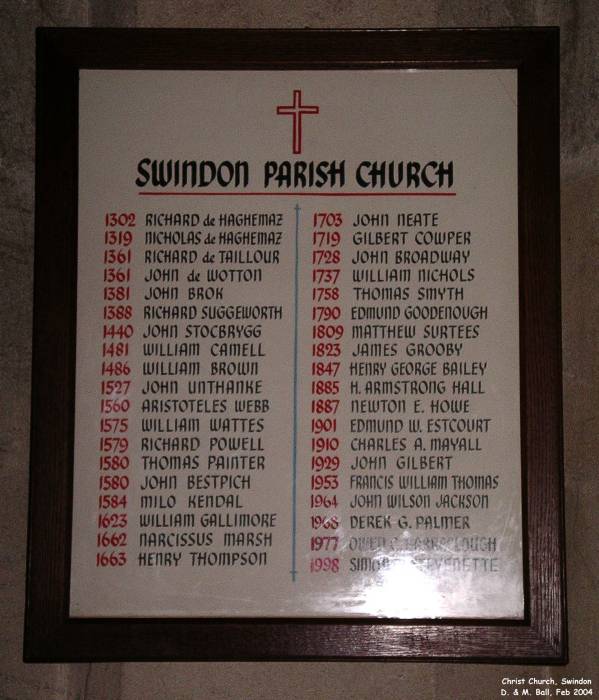 SWINDON PARISH CHURCH
1302 RICHARD de HAGHEMAZ
1319 NICHOLAS de HAGHEMAZ
1361 RICHARD de TAILLOUR
1361 JOHN de WOTTON
1381 JOHN BROK
1388 RICHARD SUGGEWORTH
1440 JOHN STOCBRYGG
1481 WILLIAM CAMELL
1486 WILLIAM BROWN
1527 JOHN UNTHANKE
1560 ARISTOTELES WEBB
1575 WILLIAM WATTES
1579 RICHARD POWELL
1580 THOMAS PAINTER
1580 JOHN BESTPICH
1584 MILO KENDAL
1623 WILLIAM GALLIMORE
1662 NARCISSUS MARSH
1663 HENRY THOMPSON
1703 JOHN NEATE
1719 GILBERT COWPER
1728 JOHN BROADWAY
1737 WILLIAM NICHOLS
1758 THOMAS SMYTH
1790 EDMUND GOODENOUGH
1809 MATTHEW SURTEES
1823 JAMES GROOBY
1847 HENRY GEORGE BAILEY
1885 H. ARMSTRONG HALL
1887 NEWTON E. HOWE
1901 EDMUND W. ESTCOURT
1910 CHARLES A. MAYALL
1929 JOHN GILBERT
1953 FRANCIS WILLIAM THOMAS
1964 JOHN WILSON JACKSON
1968 DEREK G. PALMER
1977 OWEN C. BARRACLOUGH
1998
Christ Church, Swindon
D. & M. Ball, Feb 2004